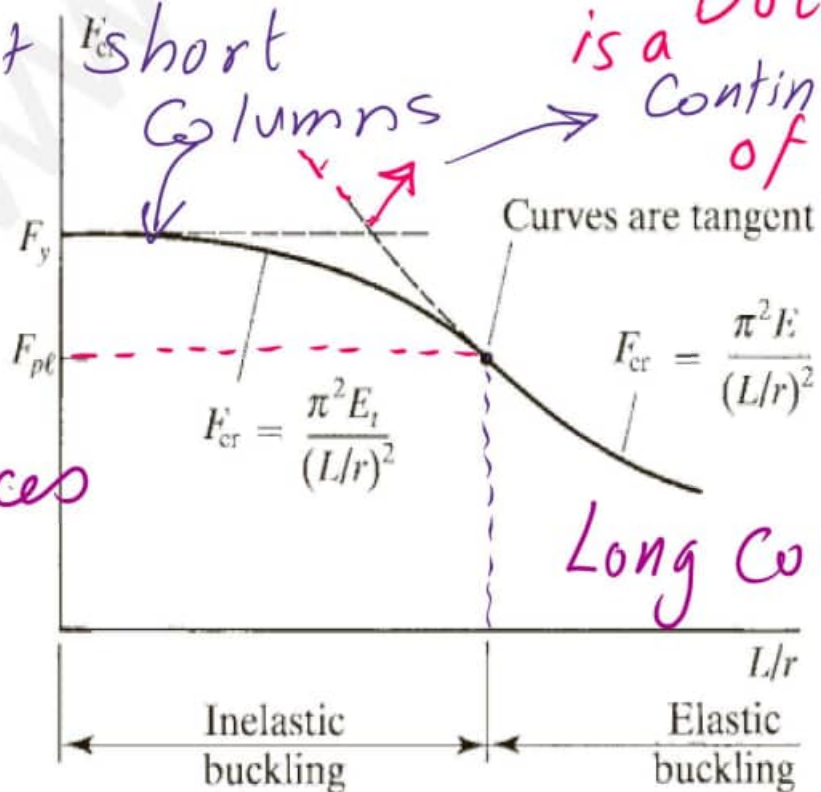 short
Columns
is a
Contin
of
Curves are tangent
F_y
F_{pℓ}
F_{cr} = \frac{π²E}{(L/r)²}
F_{cr} = \frac{π²E_t}{(L/r)²}
ces
Long Co
L/r
Inelastic
buckling
Elastic
buckling